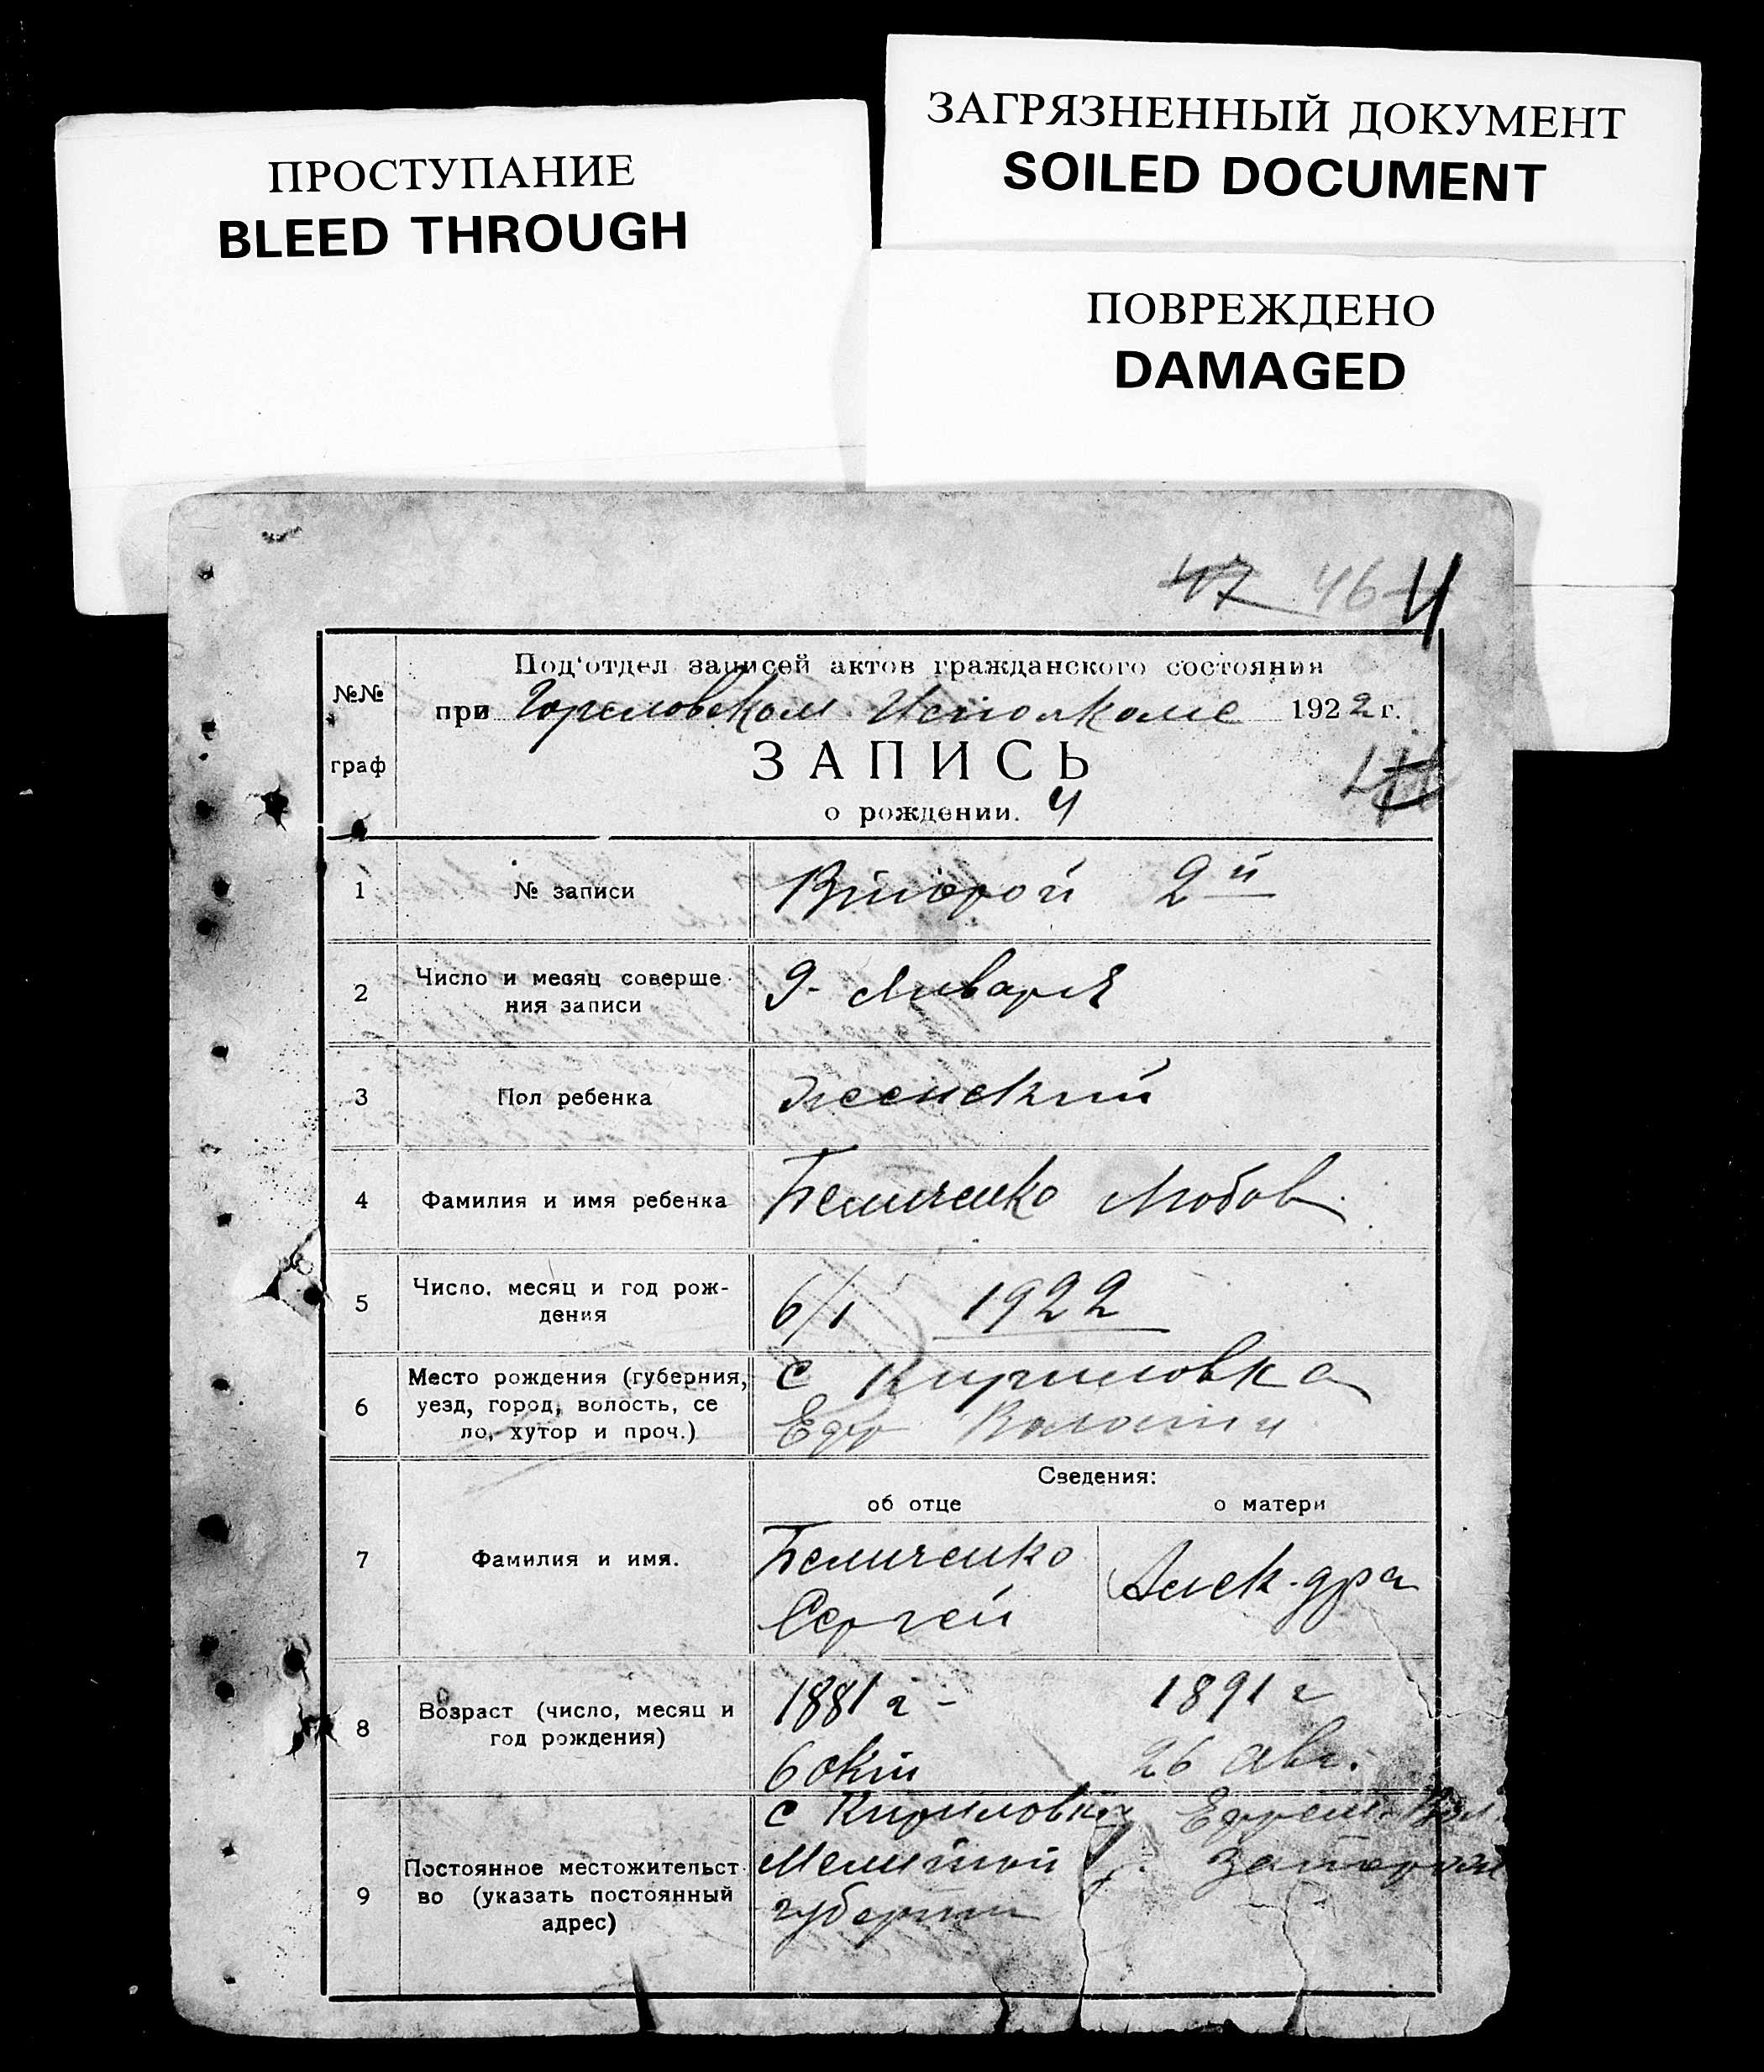 ПРОСТУПАНИЕ
BLEED THROUGH
ЗАГРЯЗНЕННЫЙ ДОКУМЕНТ
SOILED DOCUMENT
ПОВРЕЖДЕНО
DAMAGED
47 46
№№ граф
Под'отдел записей актов гражданского состояния
при Исполкоме 1922 г.
ЗАПИСЬ
о рождении. 4
1 № записи Второй 2й
2 Число и месяц соверше
ния записи
9- Января
3 Пол ребенка женский
4 Фамилия и имя ребенка Беличенко Любов
5 Число, месяц и год рож-
дения
6/1 1922
6 Место рождения (губерния,
уезд, город, волость, се
ло, хутор и проч.)
с Кириловка
Ефр Волости
Сведения:
об отце о матери
7 Фамилия и имя.
Беличенко
Сергей
Алек-дра
8 Возраст (число, месяц и
год рождения)
1881 г - 1891 г
6 окт 26 авг.
9 Постоянное местожительст
во (указать постоянный
адрес)
с Кириловки Ефрем Вол
Мелитопол Запорож
губернии